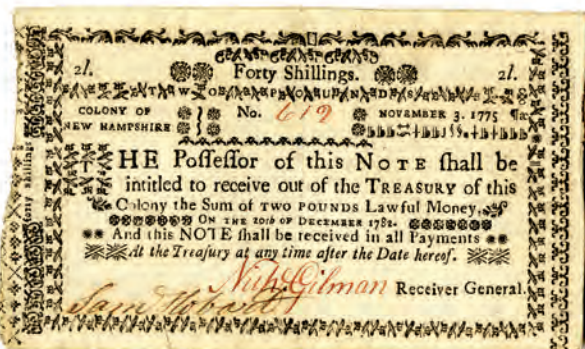 2l. Forty Shillings. 2l.
TWO POUNDS
COLONY OF NEW HAMPSHIRE No. 619 NOVEMBER 3. 1775
THE Poſſeſſor of this NOTE ſhall be
intitled to receive out of the TREASURY of this
Colony the Sum of TWO POUNDS Lawful Money,
ON THE 20th OF DECEMBER 1782.
And this NOTE ſhall be received in all Payments
At the Treaſury at any time after the Date hereof.
Nichs Gilman Receiver General.
Saml Hobart
Forty Shillings